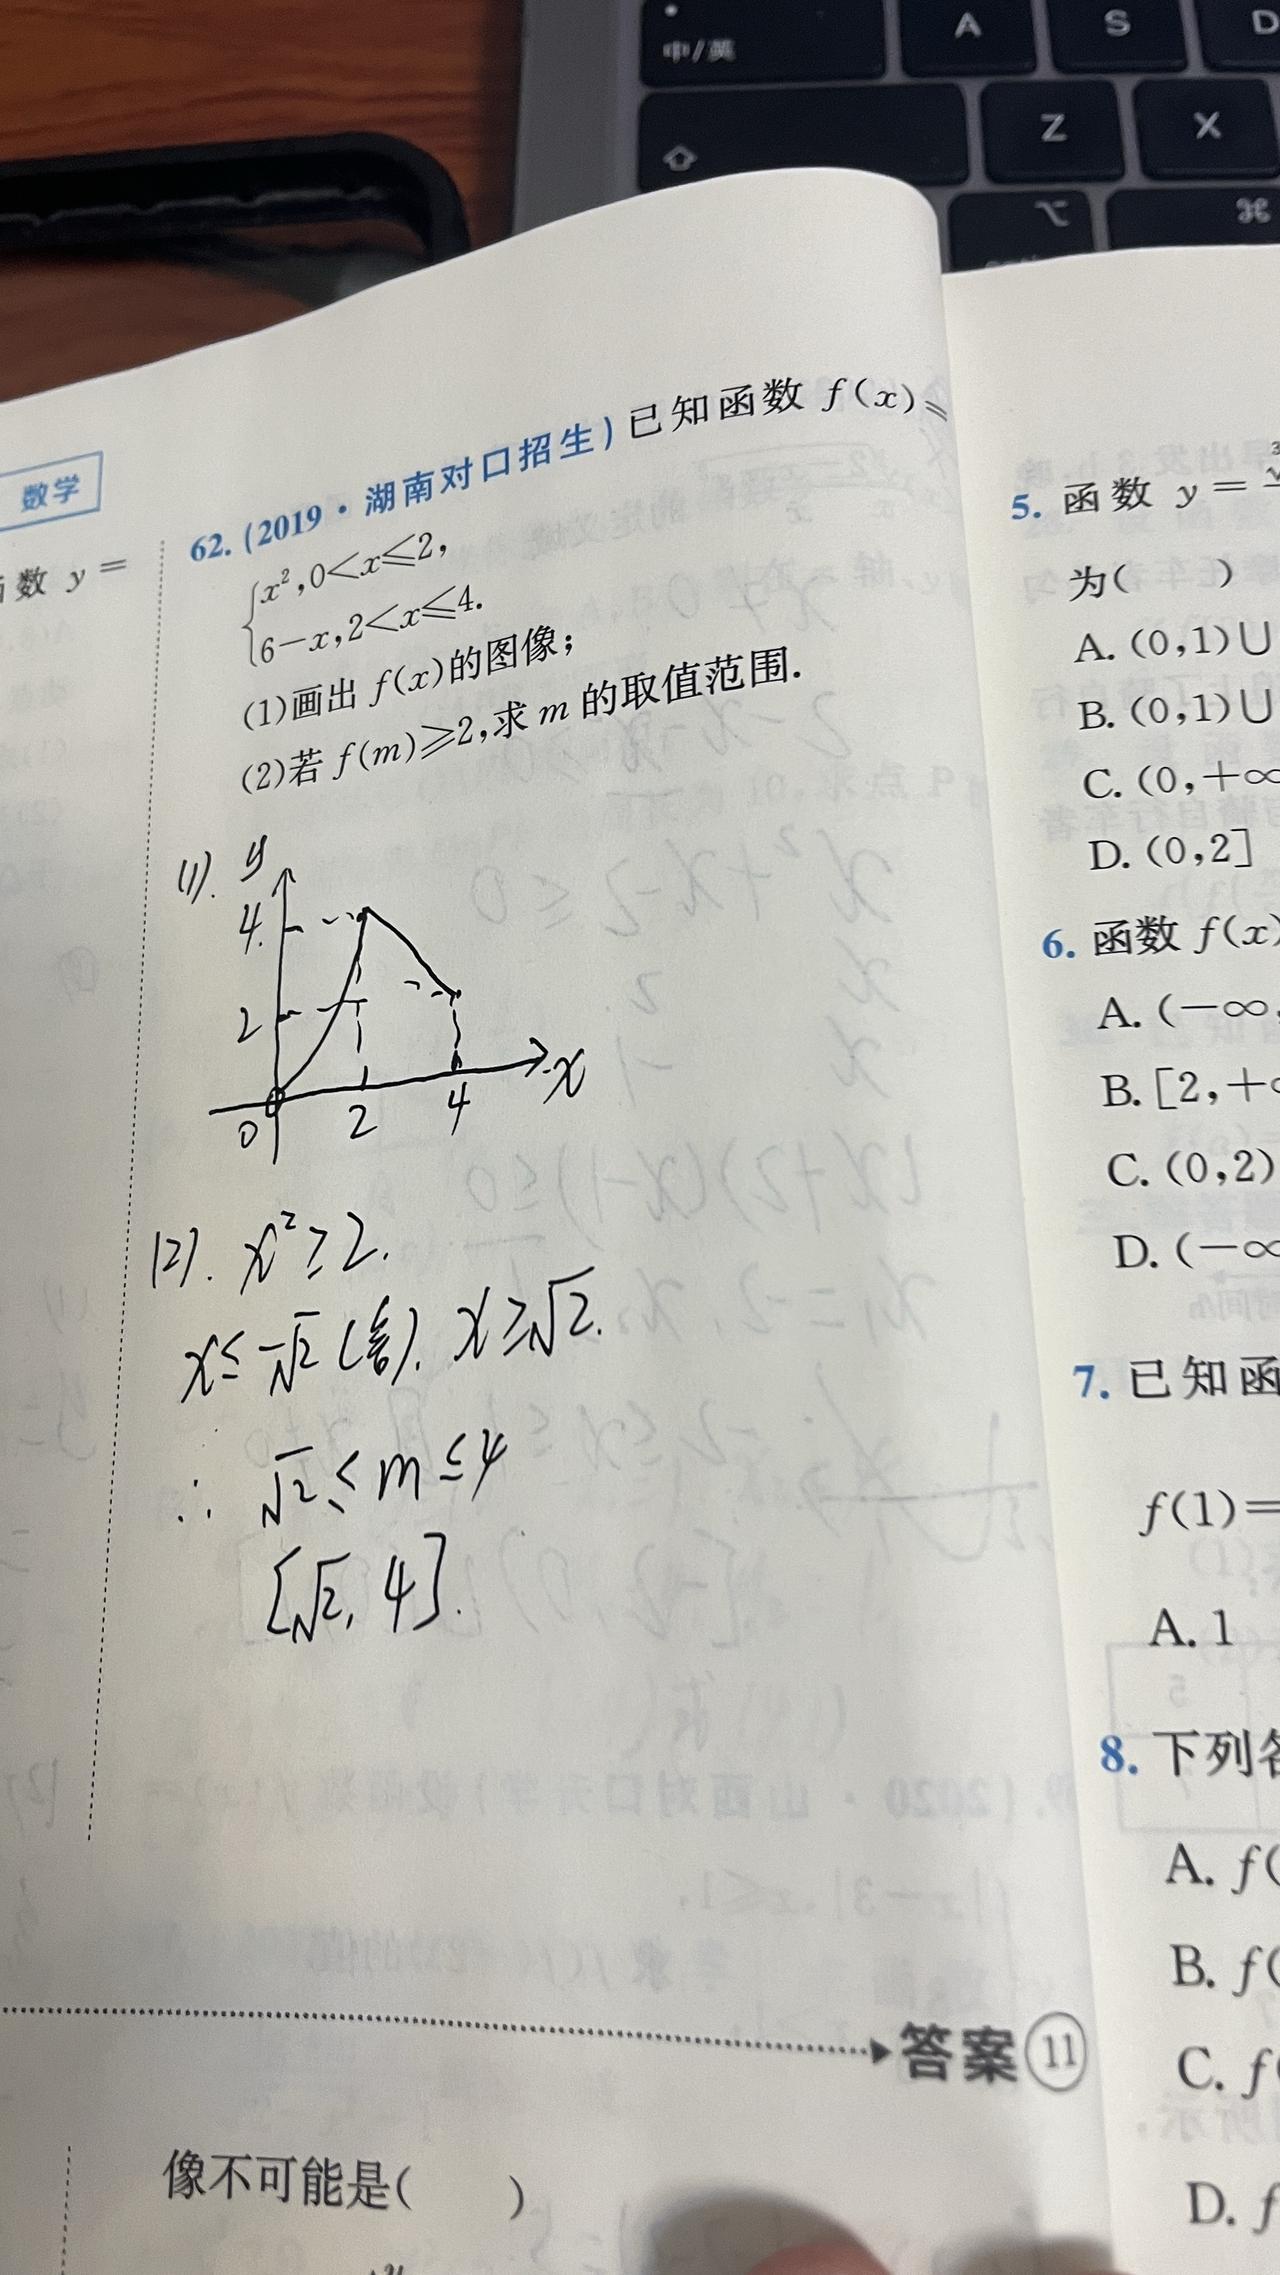 中/英
A
S
D
Z
X
⌥
⌘
数学
数 y =
62. (2019·湖南对口招生)已知函数 f(x)=
{x²,0<x≤2,
6-x,2<x≤4.
(1)画出 f(x)的图像;
(2)若 f(m)≥2,求 m 的取值范围.
(1). y
4
2
0 2 4 x
(2). x²≥2.
x≤-√2 (舍). x≥√2.
∴ √2≤m≤4
[√2, 4].
答案 11
像不可能是( )
5. 函数 y =
为( )
A. (0,1)∪
B. (0,1)∪
C. (0,+∞
D. (0,2]
6. 函数 f(x)
A. (-∞,
B. [2,+∞
C. (0,2)
D. (-∞
7. 已知函
f(1)=
A. 1
8. 下列各
A. f(
B. f(
C. f(
D. f